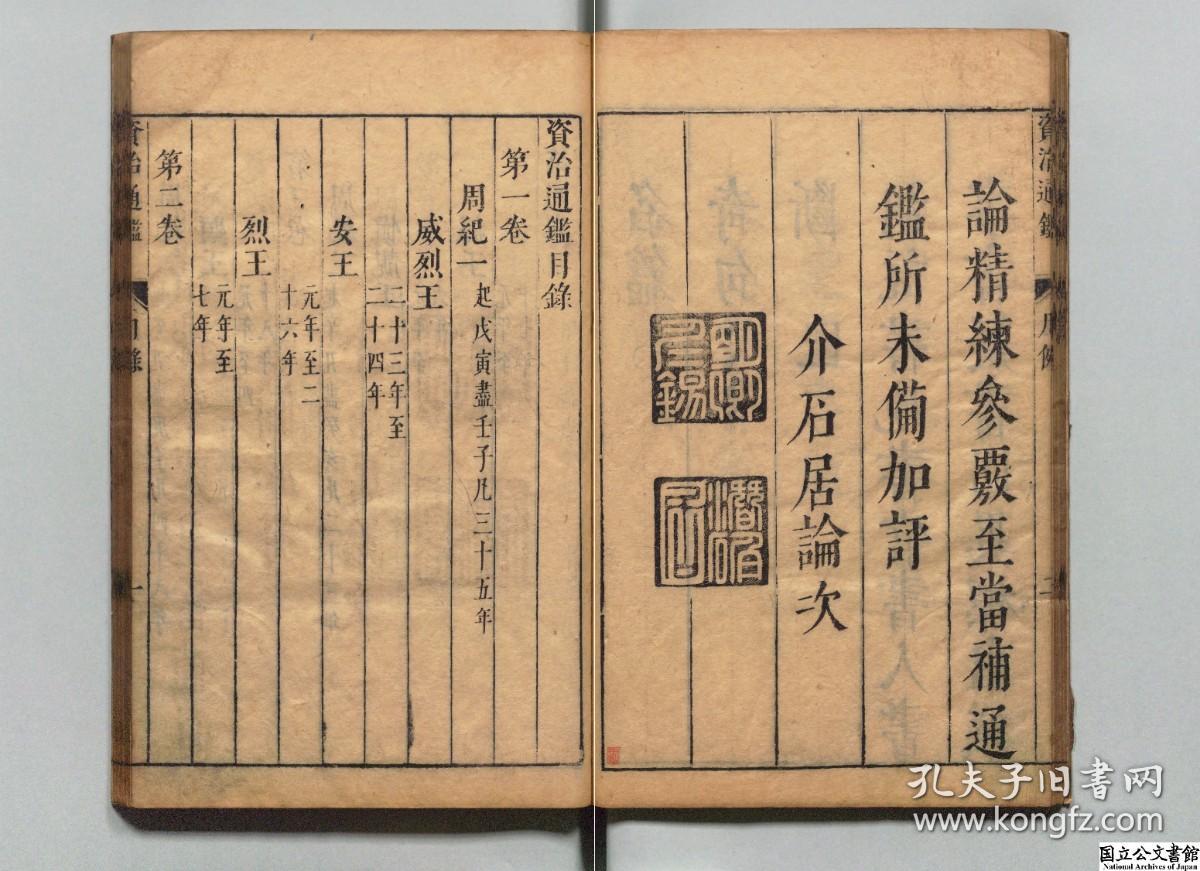 論精練參覈至當補通
鑑所未備加評
介石居論次
資治通鑑
二
資治通鑑目錄
第一卷
周紀一 起戊寅盡壬子凡三十五年
威烈王
二十三年至
二十四年
安王
元年至二
十六年
烈王
元年至
七年
第二卷
資治通鑑
目錄
一
孔夫子旧书网
www.kongfz.com
国立公文書館
National Archives of Japan